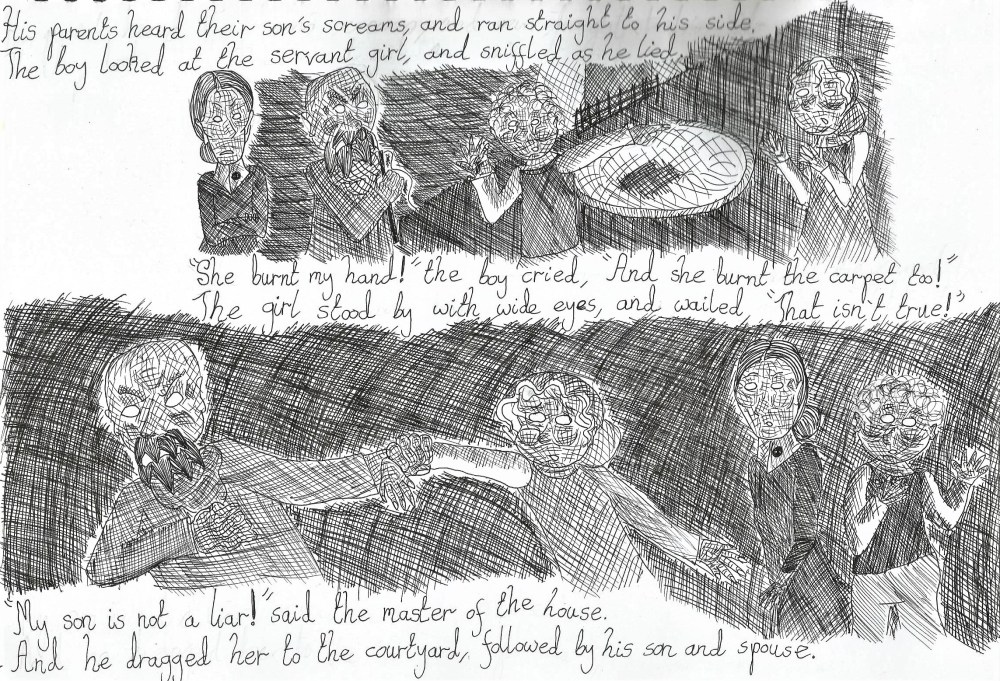 His parents heard their son's screams, and ran straight to his side.
The boy looked at the servant girl, and sniffled as he lied,
"She burnt my hand!" the boy cried, "And she burnt the carpet too!"
The girl stood by with wide eyes, and wailed, "That isn't true!"
"My son is not a liar!" said the master of the house.
And he dragged her to the courtyard, followed by his son and spouse.